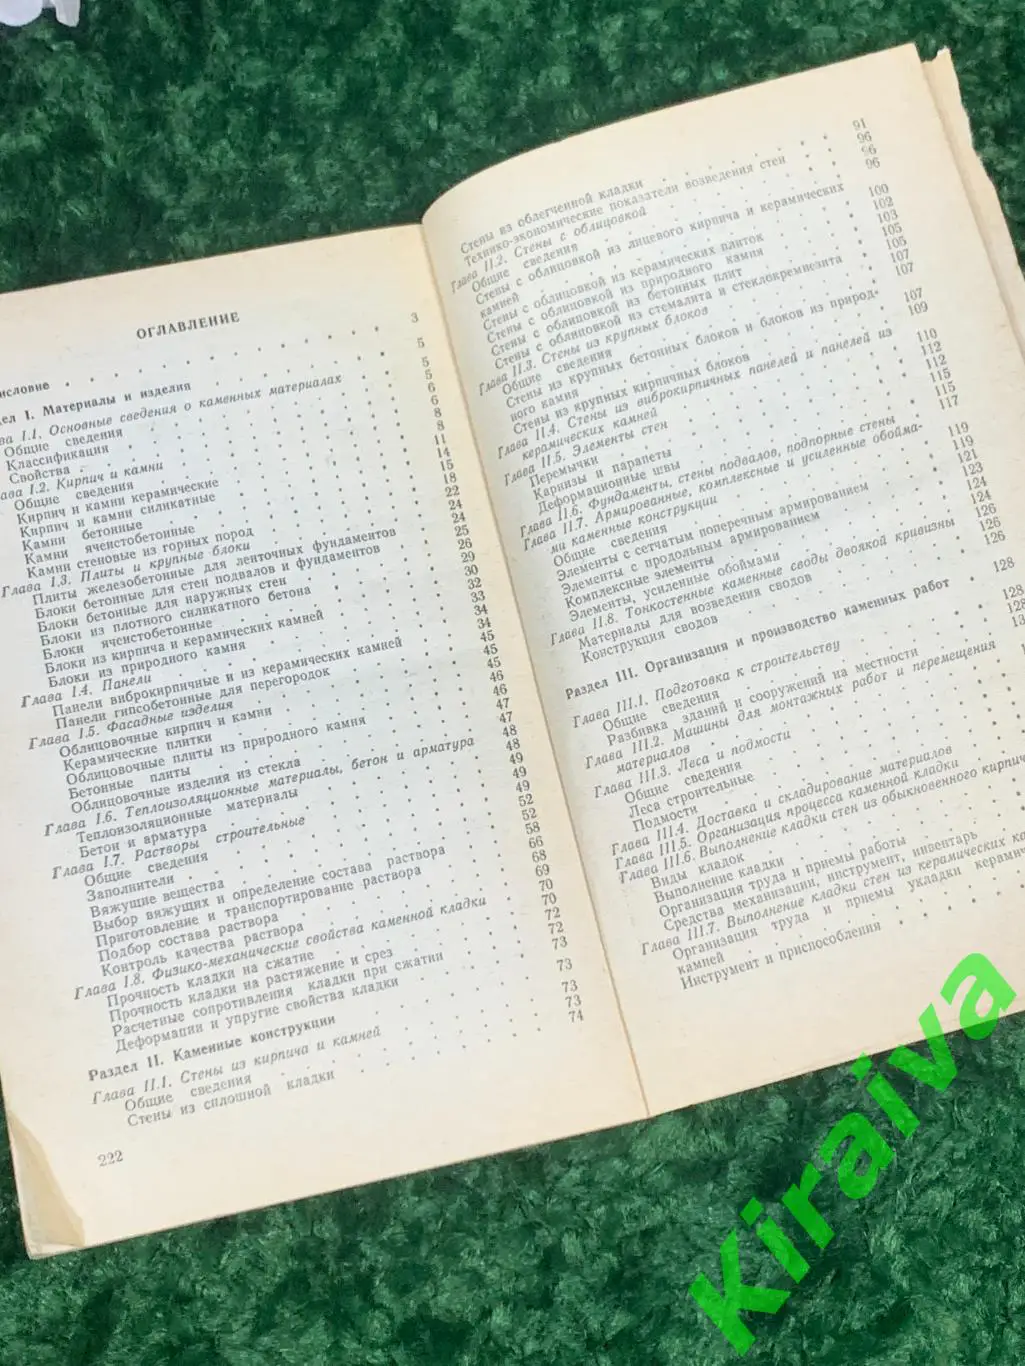 ОГЛАВЛЕНИЕ
исловие . . . 3
дел I. Материалы и изделия . . . 5
ва I.1. Основные сведения о каменных материалах . . . 5
Общие сведения . . . 5
Классификация . . . 6
Свойства . . . 6
лава I.2. Кирпич и камни . . . 8
Общие сведения . . . 8
Кирпич и камни керамические . . . 11
Кирпич и камни силикатные . . . 14
Камни бетонные . . . 15
Камни ячеистобетонные . . . 18
Камни стеновые из горных пород . . . 22
Глава I.3. Плиты и крупные блоки . . . 24
Плиты железобетонные для ленточных фундаментов . . . 24
Блоки бетонные для стен подвалов и фундаментов . . . 25
Блоки бетонные для наружных стен . . . 26
Блоки из плотного силикатного бетона . . . 29
Блоки ячеистобетонные . . . 30
Блоки из кирпича и керамических камней . . . 32
Блоки из природного камня . . . 33
Глава I.4. Панели . . . 34
Панели виброкирпичные и из керамических камней . . . 34
Панели гипсобетонные для перегородок . . . 45
Глава I.5. Фасадные изделия . . . 45
Облицовочные кирпич и камни . . . 45
Керамические плитки . . . 46
Облицовочные плиты из природного камня . . . 46
Бетонные плиты . . . 47
Облицовочные изделия из стекла . . . 47
Глава I.6. Теплоизоляционные материалы, бетон и арматура . . . 48
Теплоизоляционные материалы . . . 48
Бетон и арматура . . . 49
Глава I.7. Растворы строительные . . . 49
Общие сведения . . . 49
Заполнители . . . 52
Вяжущие вещества . . . 52
Выбор вяжущих и определение состава раствора . . . 58
Приготовление и транспортирование раствора . . . 66
Подбор состава раствора . . . 68
Контроль качества раствора . . . 69
Глава I.8. Физико-механические свойства каменной кладки . . . 70
Прочность кладки на сжатие . . . 70
Прочность кладки на растяжение и срез . . . 72
Расчетные сопротивления кладки при сжатии . . . 72
Деформации и упругие свойства кладки . . . 73
Раздел II. Каменные конструкции . . . 73
Глава II.1. Стены из кирпича и камней . . . 73
Общие сведения . . . 73
Стены из сплошной кладки . . . 74
222
Стены из облегченной кладки . . . 91
Технико-экономические показатели возведения стен . . . 96
Глава II.2. Стены с облицовкой . . . 96
Общие сведения . . . 96
Стены с облицовкой из лицевого кирпича и керамических
камней . . . 100
Стены с облицовкой из керамических плиток . . . 102
Стены с облицовкой из природного камня . . . 103
Стены с облицовкой из бетонных плит . . . 105
Стены с облицовкой из стемалита и стеклокремнезита . . . 105
Глава II.3. Стены из крупных блоков . . . 107
Общие сведения . . . 107
Стены из крупных бетонных блоков и блоков из природ-
ного камня . . . 107
Стены из крупных кирпичных блоков . . . 109
Глава II.4. Стены из виброкирпичных панелей и панелей из
керамических камней . . . 110
Глава II.5. Элементы стен . . . 112
Перемычки . . . 112
Карнизы и парапеты . . . 115
Деформационные швы . . . 115
Глава II.6. Фундаменты, стены подвалов, подпорные стены . . . 117
Глава II.7. Армированные, комплексные и усиленные обойма-
ми каменные конструкции . . . 119
Общие сведения . . . 119
Элементы с сетчатым поперечным армированием . . . 121
Элементы с продольным армированием . . . 123
Комплексные элементы . . . 124
Элементы, усиленные обоймами . . . 124
Глава II.8. Тонкостенные каменные своды двоякой кривизны . . . 126
Материалы для возведения сводов . . . 126
Конструкция сводов . . . 126
Раздел III. Организация и производство каменных работ . . . 128
Глава III.1. Подготовка к строительству . . . 128
Общие сведения . . . 128
Разбивка зданий и сооружений на местности
Глава III.2. Машины для монтажных работ и перемещения
материалов
Глава III.3. Леса и подмости
Общие сведения
Леса строительные
Подмости
Глава III.4. Доставка и складирование материалов
Глава III.5. Организация процесса каменной кладки
Глава III.6. Выполнение кладки стен из обыкновенного кирпич
Виды кладок
Выполнение кладки
Организация труда и приемы работы
Средства механизации, инструмент, инвентарь
Глава III.7. Выполнение кладки стен из керамических ка
Организация труда и приемы укладки керамич
камней
Инструмент и приспособления
Kiraiva